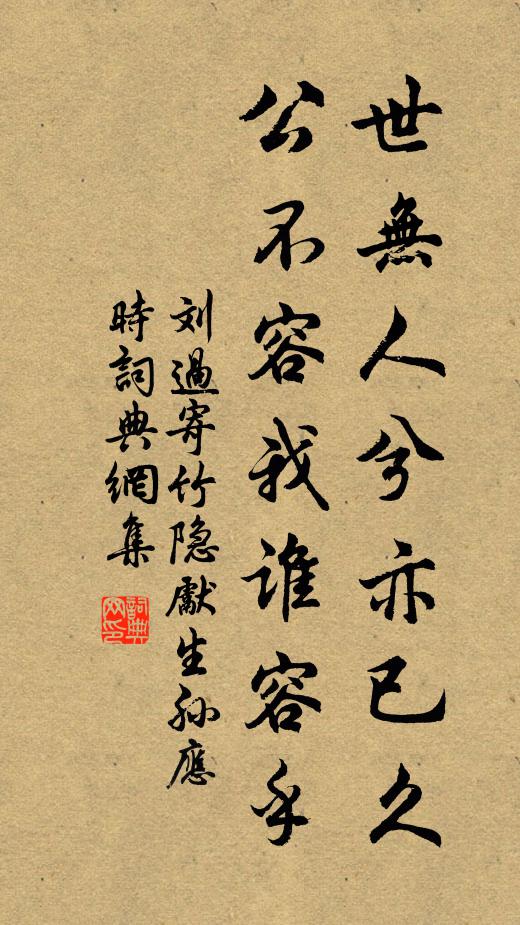 世無人兮亦已久
公不容我谁容乎
刘過寄竹隐獻生孙應
時詞典網集
詞典
网印